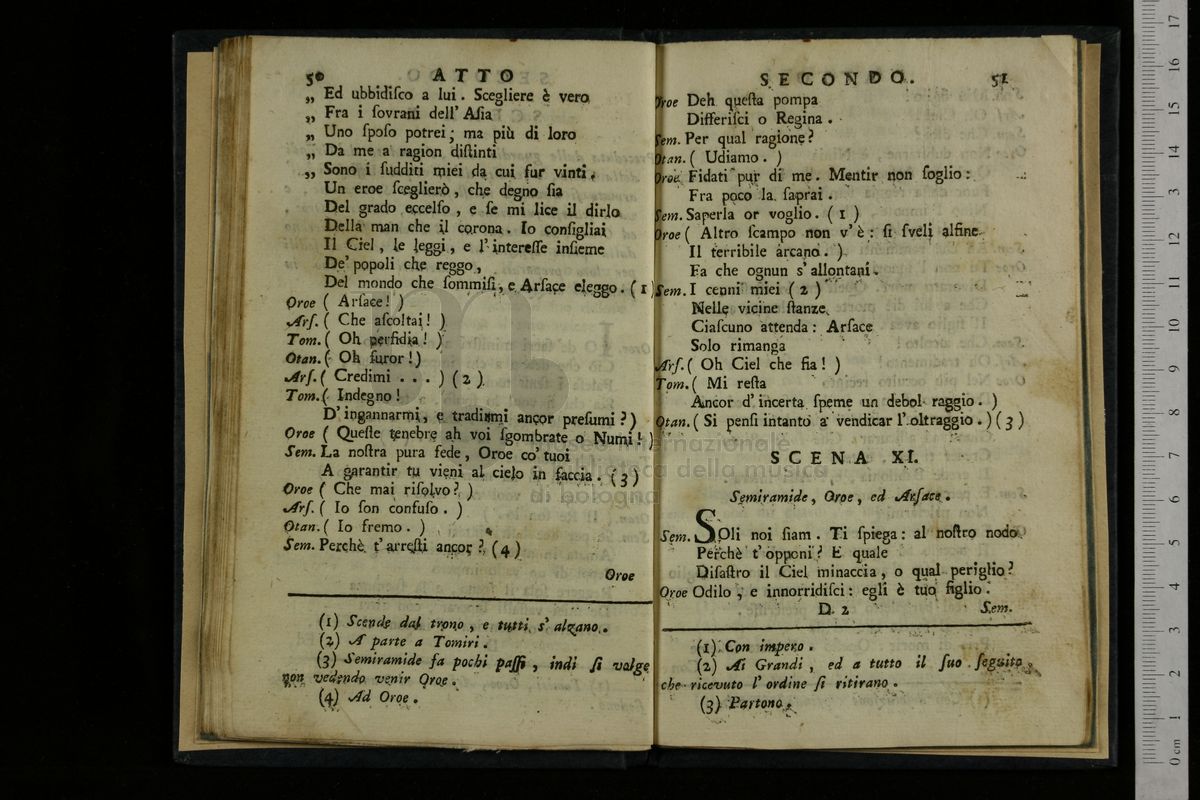 50 ATTO
„ Ed ubbidiſco a lui. Scegliere è vero
„ Fra i ſovrani dell' Aſia
„ Uno ſpoſo potrei; ma più di loro
„ Da me a ragion diſtinti
„ Sono i ſudditi miei da cui fur vinti.
Un eroe ſceglierò, che degno ſia
Del grado eccelſo, e ſe mi lice il dirlo
Della man che il corona. Io conſigliai
Il Ciel, le leggi, e l'intereſſe inſieme
De' popoli che reggo,
Del mondo che ſommiſi, e Arſace eleggo. (1)
Oroe ( Arſace! )
Arſ. ( Che aſcoltai! )
Tom. ( Oh perfidia! )
Otan. ( Oh furor!)
Arſ. ( Credimi . . . ) (2)
Tom. ( Indegno!
D'ingannarmi, e tradirmi ancor preſumi?)
Oroe ( Queſte tenebre ah voi ſgombrate o Numi! )
Sem. La noſtra pura fede, Oroe co' tuoi
A garantir tu vieni al cielo in faccia. (3)
Oroe ( Che mai riſolvo? )
Arſ. ( Io ſon confuſo. )
Otan. ( Io fremo. )
Sem. Perchè t'arreſti ancor? (4)
Oroe
(1) Scende dal trono, e tutti s' alzano.
(2) A parte a Tomiri.
(3) Semiramide fa pochi paſſi, indi ſi volge
non vedendo venir Oroe.
(4) Ad Oroe.
SECONDO. 51
Oroe Deh queſta pompa
Differiſci o Regina.
Sem. Per qual ragione?
Otan. ( Udiamo. )
Oroe Fidati pur di me. Mentir non ſoglio:
Fra poco la ſaprai.
Sem. Saperla or voglio. (1)
Oroe ( Altro ſcampo non v'è: ſi ſveli alfine
Il terribile arcano. )
Fa che ognun s'allontani.
Sem. I cenni miei (2)
Nelle vicine ſtanze
Ciaſcuno attenda: Arſace
Solo rimanga
Arſ. ( Oh Ciel che ſia! )
Tom. ( Mi reſta
Ancor d'incerta ſpeme un debol raggio. )
Otan. ( Si penſi intanto a vendicar l'oltraggio. ) (3)
SCENA XI.
Semiramide, Oroe, ed Arſace.
Sem. SOli noi ſiam. Ti ſpiega: al noſtro nodo
Perchè t'opponi? E quale
Diſaſtro il Ciel minaccia, o qual periglio?
Oroe Odilo, e innorridiſci: egli è tuo figlio.
D 2 Sem.
(1) Con impero.
(2) Ai Grandi, ed a tutto il ſuo ſeguito,
che ricevuto l' ordine ſi ritirano.
(3) Partono.
museo internazionale
e biblioteca della musica
di bologna
0 cm 1 2 3 4 5 6 7 8 9 10 11 12 13 14 15 16 17